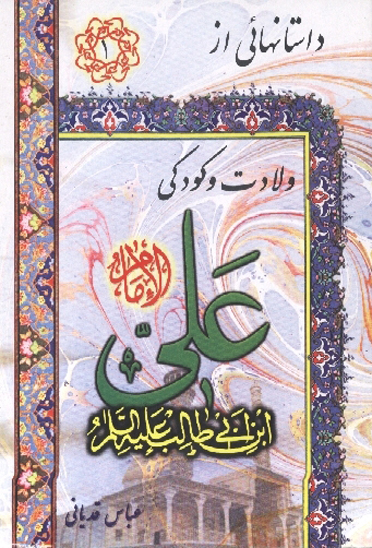 داستانهائی از
۱
ولادت و کودکی
الإمام
عَلیّ
ابن أبی طالب علیه السلام
عباس قدیانی